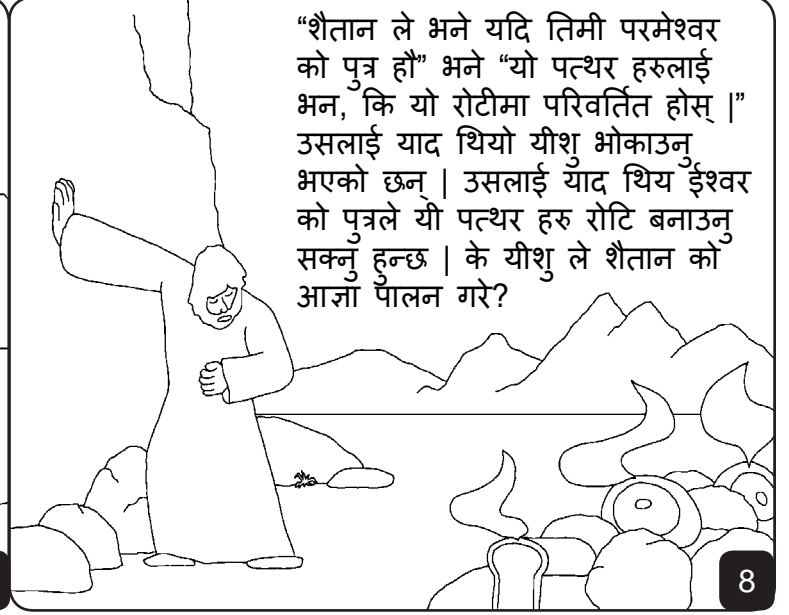 “शैतान ले भने यदि तिमी परमेश्वर
को पुत्र हौ” भने “यो पत्थर हरुलाई
भन, कि यो रोटीमा परिवर्तित होस् |”
उसलाई याद थियो यीशु भोकाउनु
भएको छन् | उसलाई याद थिय ईश्वर
को पुत्रले यी पत्थर हरु रोटि बनाउनु
सक्नु हुन्छ | के यीशु ले शैतान को
आज्ञा पालन गरे?
8